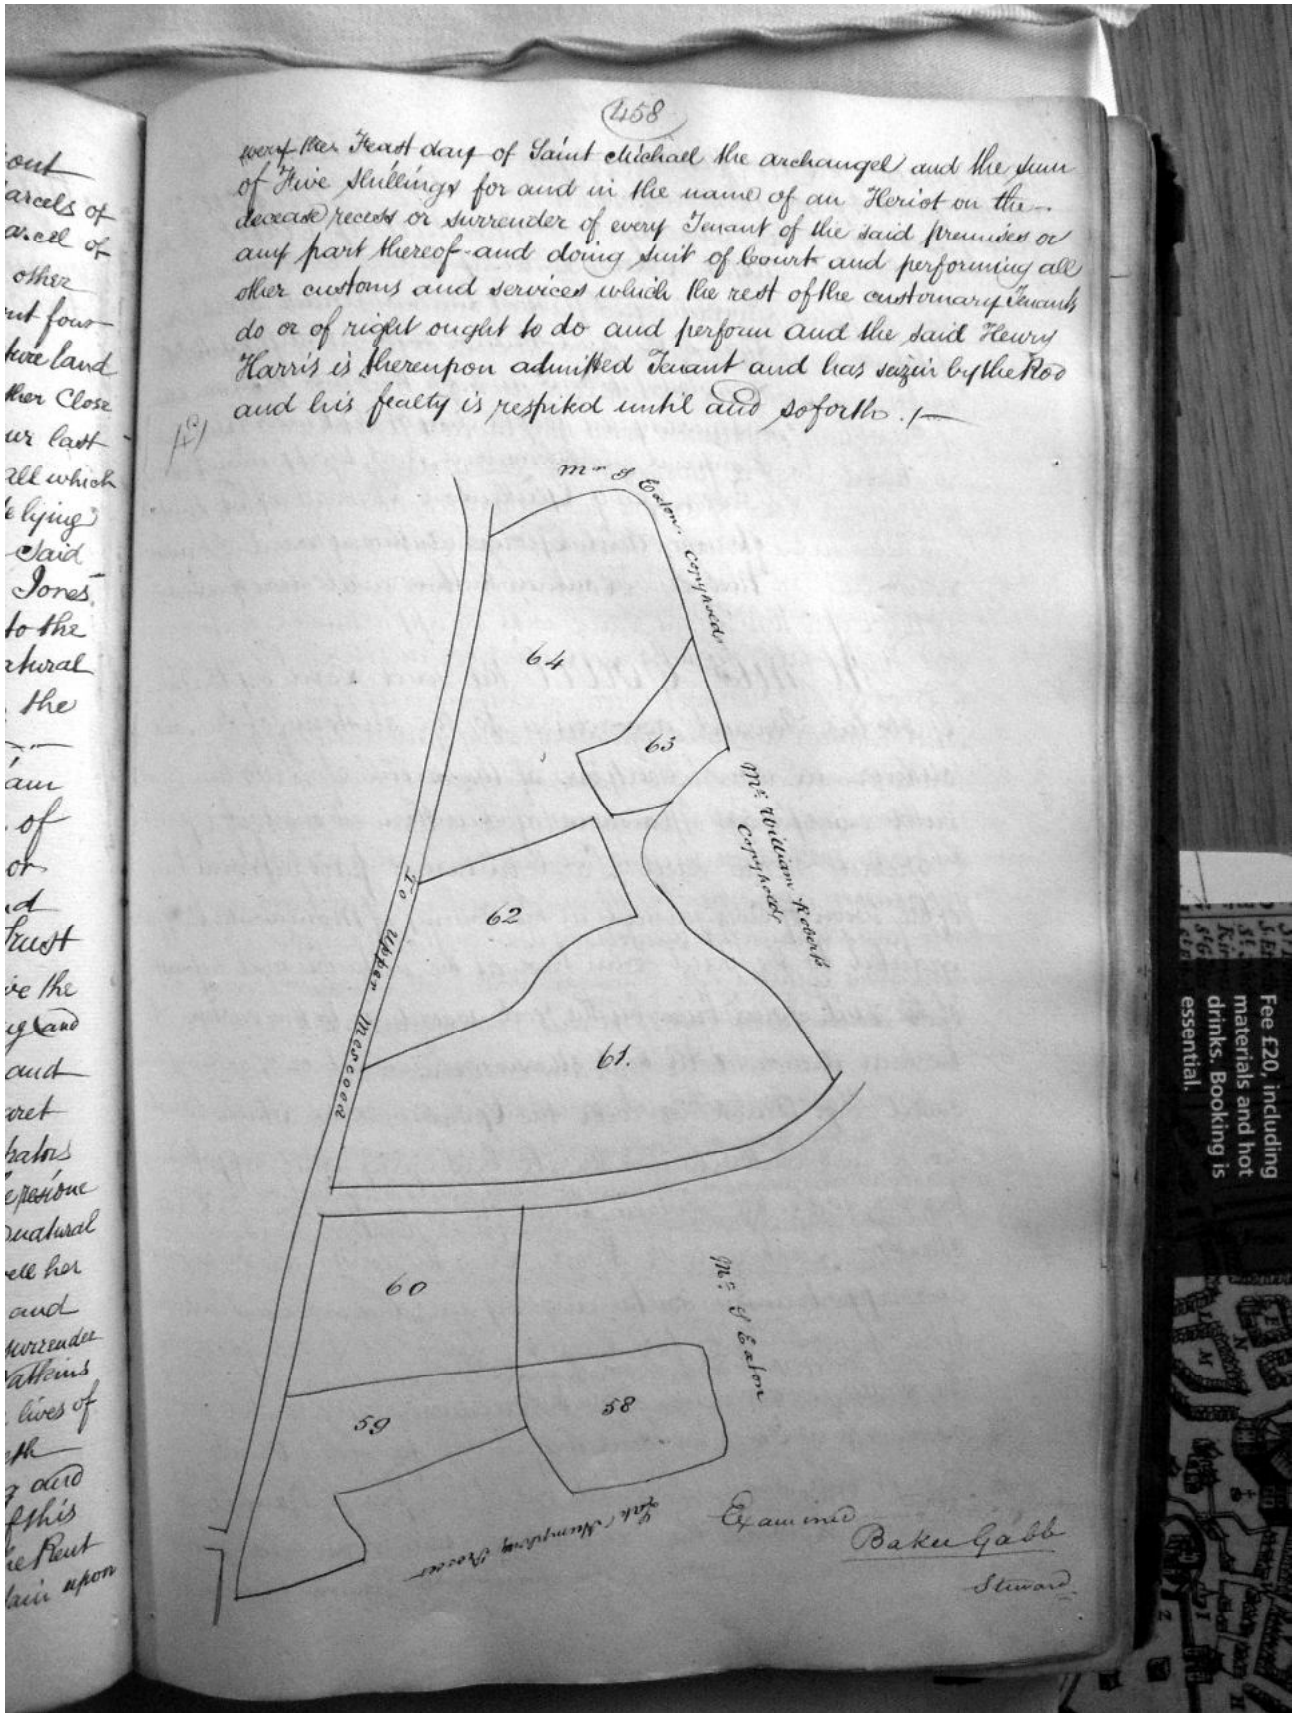 out
arcels of
arcel of
other
ut four
ture land
ther Close
ur last
all which
e lying
said
Jones
to the
atural
the
am
of
or
d
Trust
ve the
and
and
aret
natural
ell her
and
surrender
atkins
lives of
eth
and
f this
he Rent
upon
458
every the Feast day of Saint Michael the archangel and the sum
of Five Shillings for and in the name of an Heriot on the
decease recess or surrender of every Tenant of the said premises or
any part thereof and doing suit of Court and performing all
other customs and services which the rest of the customary Tenants
do or of right ought to do and perform and the said Henry
Harris is thereupon admitted Tenant and has seizin by the Rod
and his fealty is respited until and soforth./—
Eaton. copyhold
64
63
Mr. William Roberts
Copyhold
To Upper Mescoed
62
61.
60
Eaton
59
58
Late Humphry
Examined
Baker Gabb
Steward
Fee £20, including
materials and hot
drinks. Booking is
essential.